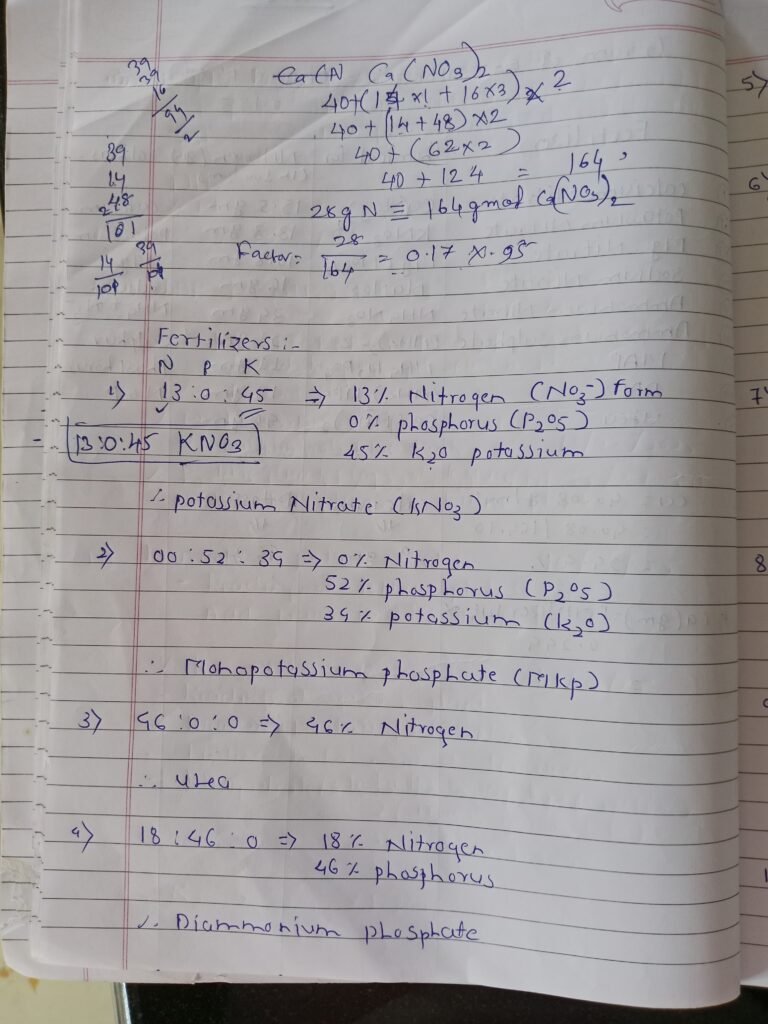 39
39
16
94
2
Ca(N Ca(NO3)2
40+(14×1 + 16×3) × 2
40 + (14 + 48) ×2
40 + (62×2)
40 + 124 = 164
28g N ≡ 164 gmol Ca(NO3)2
Factor = 28/164 = 0.17 ×.95
39
14
48
101
14/101
39
Fertilizers :-
N P K
1) 13:0:45 ⇒ 13% Nitrogen (NO3-) form
0% phosphorus (P2O5)
13:0:45 KNO3
45% K2O potassium
∴ potassium Nitrate (KNO3)
2) 00:52:34 ⇒ 0% Nitrogen
52% phosphorus (P2O5)
34% potassium (K2O)
∴ Monopotassium phosphate (MKP)
3) 46:0:0 ⇒ 46% Nitrogen
∴ urea
4) 18:46:0 ⇒ 18% Nitrogen
46% phosphorus
∴ Diammonium phosphate
5)
6)
7
8